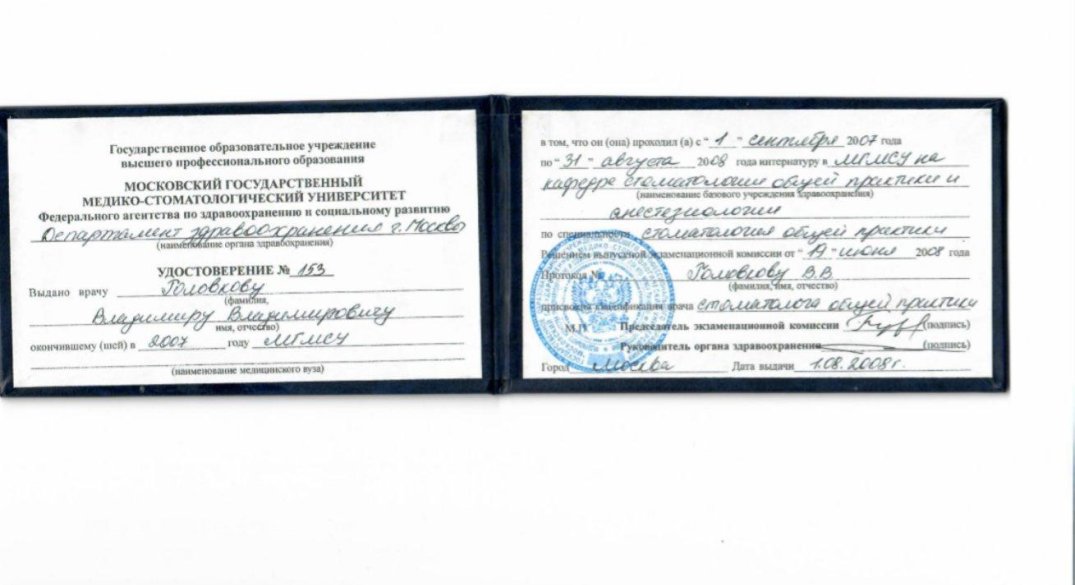 Государственное образовательное учреждение
высшего профессионального образования
МОСКОВСКИЙ ГОСУДАРСТВЕННЫЙ
МЕДИКО-СТОМАТОЛОГИЧЕСКИЙ УНИВЕРСИТЕТ
Федерального агентства по здравоохранению и социальному развитию
Департамент здравоохранения г. Москвы
(наименование органа здравоохранения)
УДОСТОВЕРЕНИЕ № 153
Выдано врачу Головкову
(фамилия,
Владимиру Владимировичу
имя, отчество)
окончившему (шей) в 2007 году МГМСУ
(наименование медицинского вуза)
в том, что он (она) проходил (а) с "1" сентября 2007 года
по "31" августа 2008 года интернатуру в МГМСУ на
кафедре стоматологии общей практики и
(наименование базового учреждения здравоохранения)
анестезиологии
по специальности стоматология общей практики
Решением выпускной экзаменационной комиссии от "19" июня 2008 года
Протокол № Головкову В.В
(фамилия, имя, отчество)
присвоена квалификация врача стоматолога общей практики
М.П. Председатель экзаменационной комиссии (подпись)
Руководитель органа здравоохранения (подпись)
Город Москва Дата выдачи 1.08.2008г.